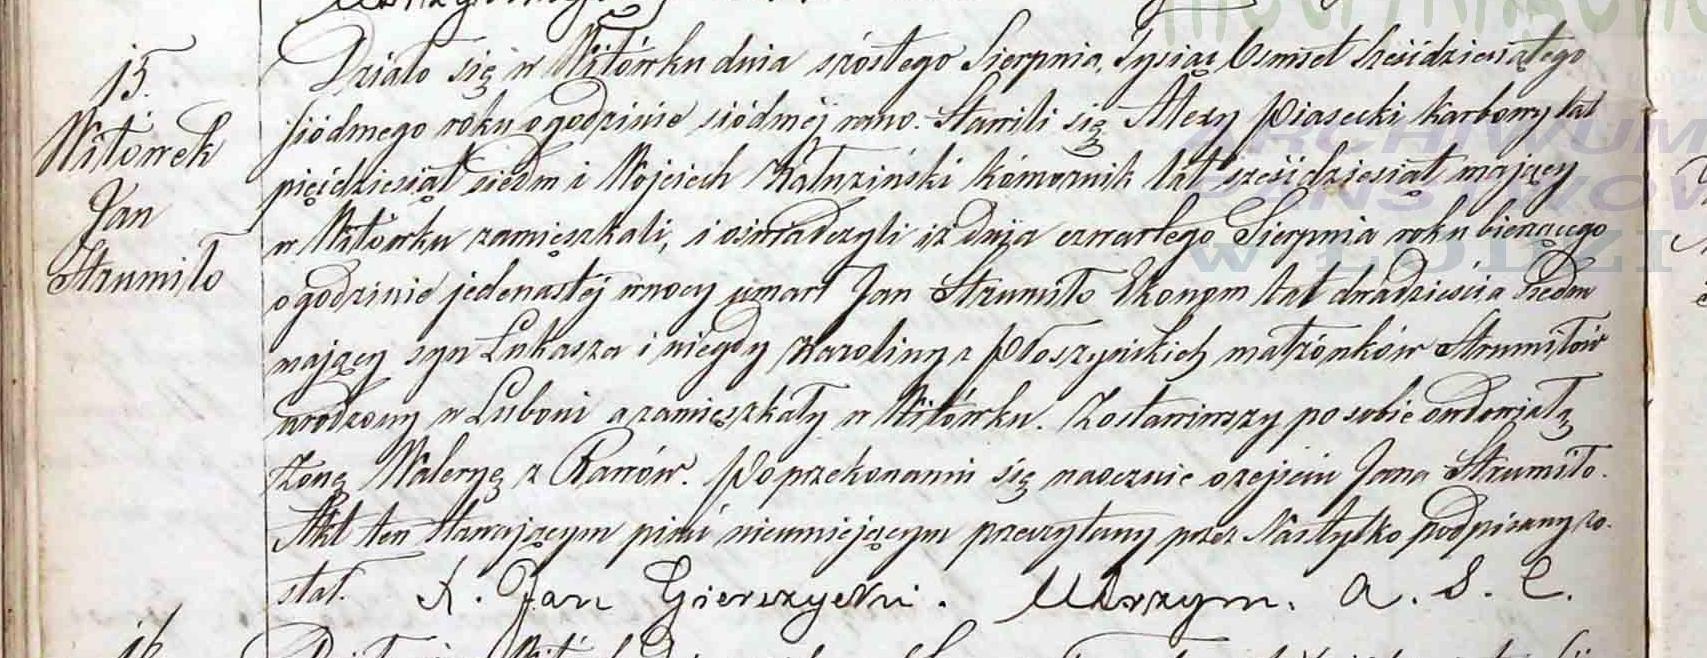 15.
Witówek
Jan
Strumiło
Działo się w Witówku dnia szóstego Sierpnia, Tysiąc Osmset sześćdziesiątego
siódmego roku o godzinie siódmej rano. Stawili się Alexy Piasecki karbowy lat
pięćdziesiąt siedm i Wojciech Kałuziński komornik lat sześćdziesiąt mający
w Witówku zamięszkali, i oświadczyli iż dnia czwartego Sierpnia roku bieżącego
o godzinie jedenastéj w nocy umarł Jan Strumiło Ekonom lat dwadzieścia siedm
mający syn Łukasza i niegdy Karoliny z Płoszyńskich małżonków Strumiłów
urodzony w Luboni a zamięszkały w Witówku. Zostawiwszy po sobie owdowiałą
żonę Waleryę z Ranów. Po przekonaniu się naocznie o zejściu Jana Strumiło.
Akt ten stawającym pisać nieumiejącym przeczytany przez Nas tylko podpisany zo-
stał. X. Jan Gierszyński. A. S. C.
16
ARCHIWUM
PAŃSTWOW
W ŁODZI